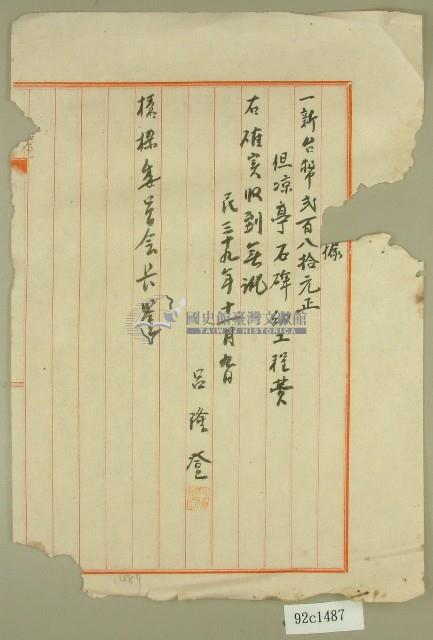 條
一新台幣弍百八拾元正
但凉亭石碑 工程費
右確实收到無訛
民三十九年十一月九日
呂隆登
橋樑委員会长
國史館臺灣文獻館
TAIWAN HISTORICA
1487
92c1487